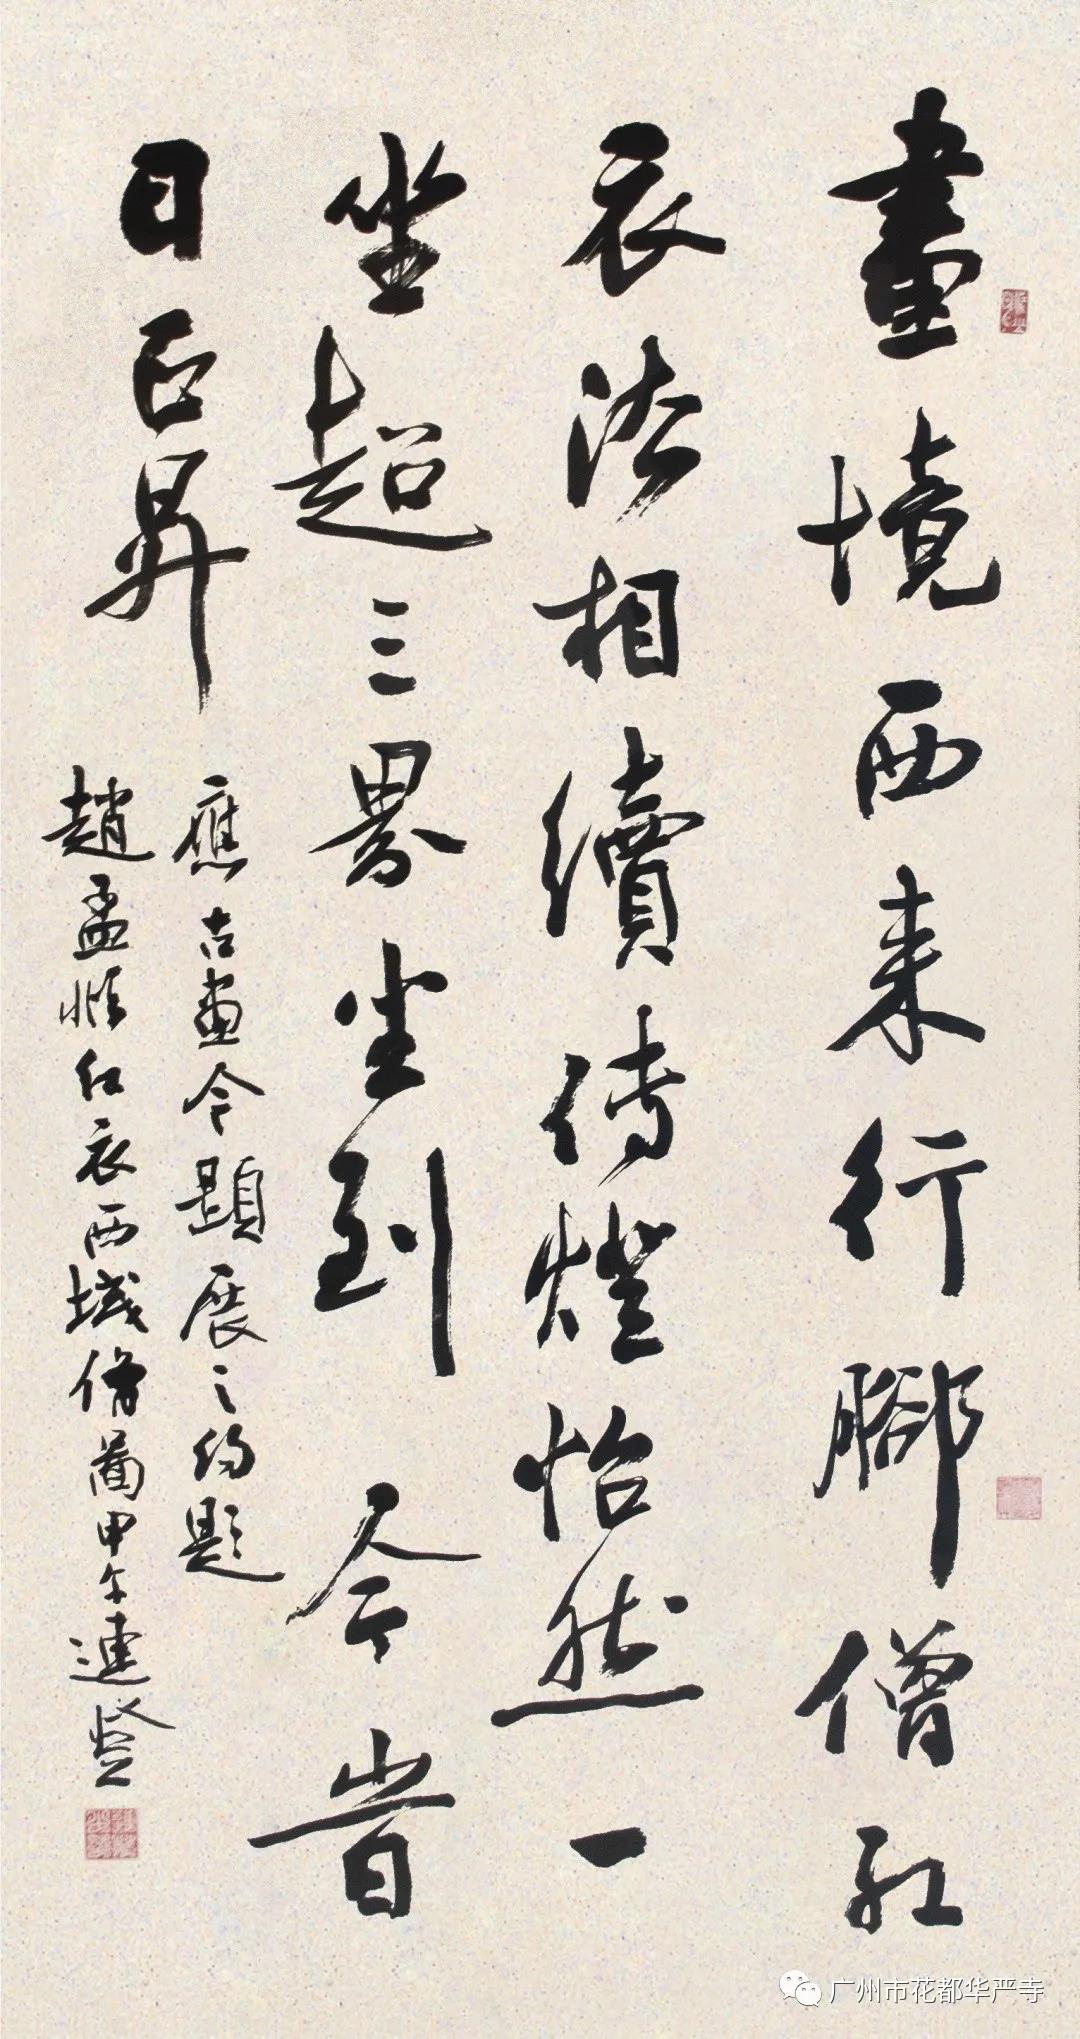 畫境西来行腳僧紅
衣法相續傳燈怡然一
坐超三界坐到今旹
日正昇
應古畫今題展之約題
趙孟頫紅衣西域僧圖甲午連登
广州市花都华严寺